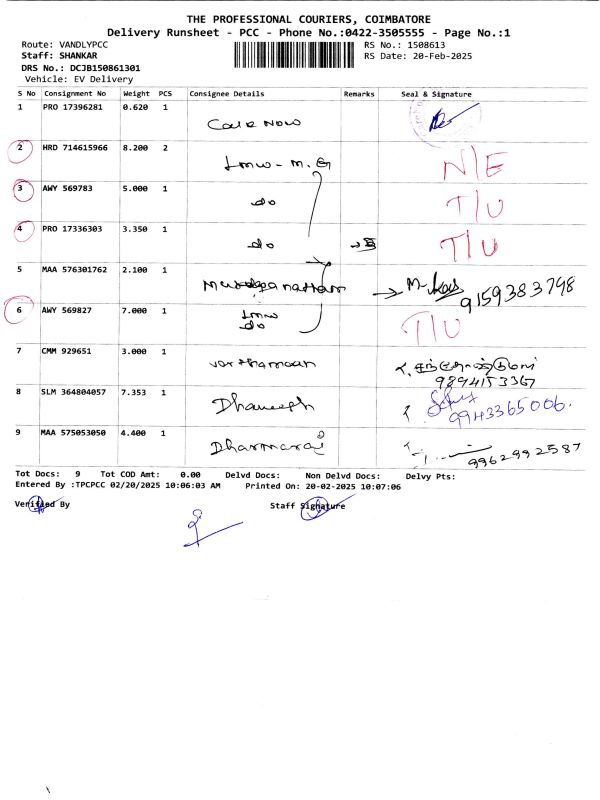 THE PROFESSIONAL COURIERS, COIMBATORE
Delivery Runsheet - PCC - Phone No.:0422-3505555 - Page No.:1
Route: VANDLYPCC RS No.: 1508613
Staff: SHANKAR RS Date: 20-Feb-2025
DRS No.: DCJB150861301
Vehicle: EV Delivery
S No Consignment No Weight PCS Consignee Details Remarks Seal & Signature
1 PRO 17396281 0.620 1
2 HRD 714615966 8.200 2 Lmw - M.G N/E
3 AWY 569783 5.000 1 do T/U
4 PRO 17336303 3.350 1 do T/U
5 MAA 576301762 2.100 1 9159383798
6 AWY 569827 7.000 1 Lmw do T/U
7 CMM 929651 3.000 1 9894153367
8 SLM 364804057 7.353 1 9943365006.
9 MAA 575053050 4.400 1 Dharmaraj 9962992587
Tot Docs: 9 Tot COD Amt: 0.00 Delvd Docs: Non Delvd Docs: Delvy Pts:
Entered By :TPCPCC 02/20/2025 10:06:03 AM Printed On: 20-02-2025 10:07:06
Verified By Staff Signature